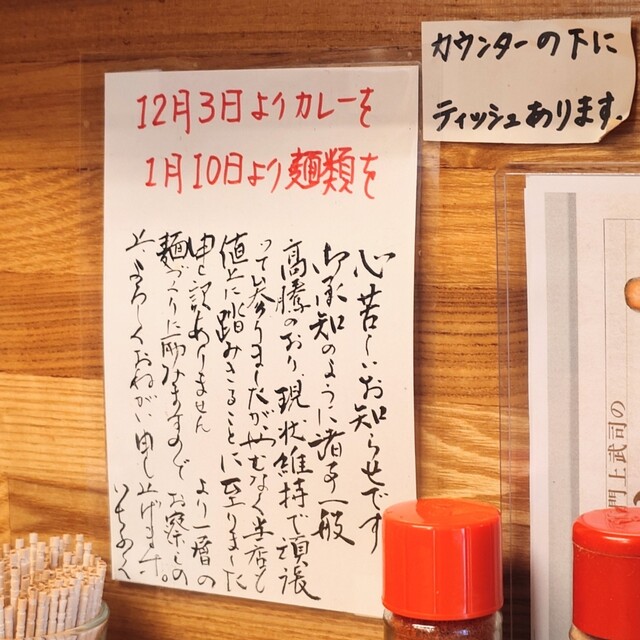 12月3日よりカレーを
1月10日より麺類を
心苦しいお知らせです
御承知のように諸事一般
高騰のおり、現状維持で頑張
って参りましたがやむなく当店も
値上に踏みきることに至りました
申し訳ありません より一層の
麺づくりに励みますのでお察しの
上よろしくおねがい申し上げます。
カウンターの下に
ティッシュあります.
門上武司の